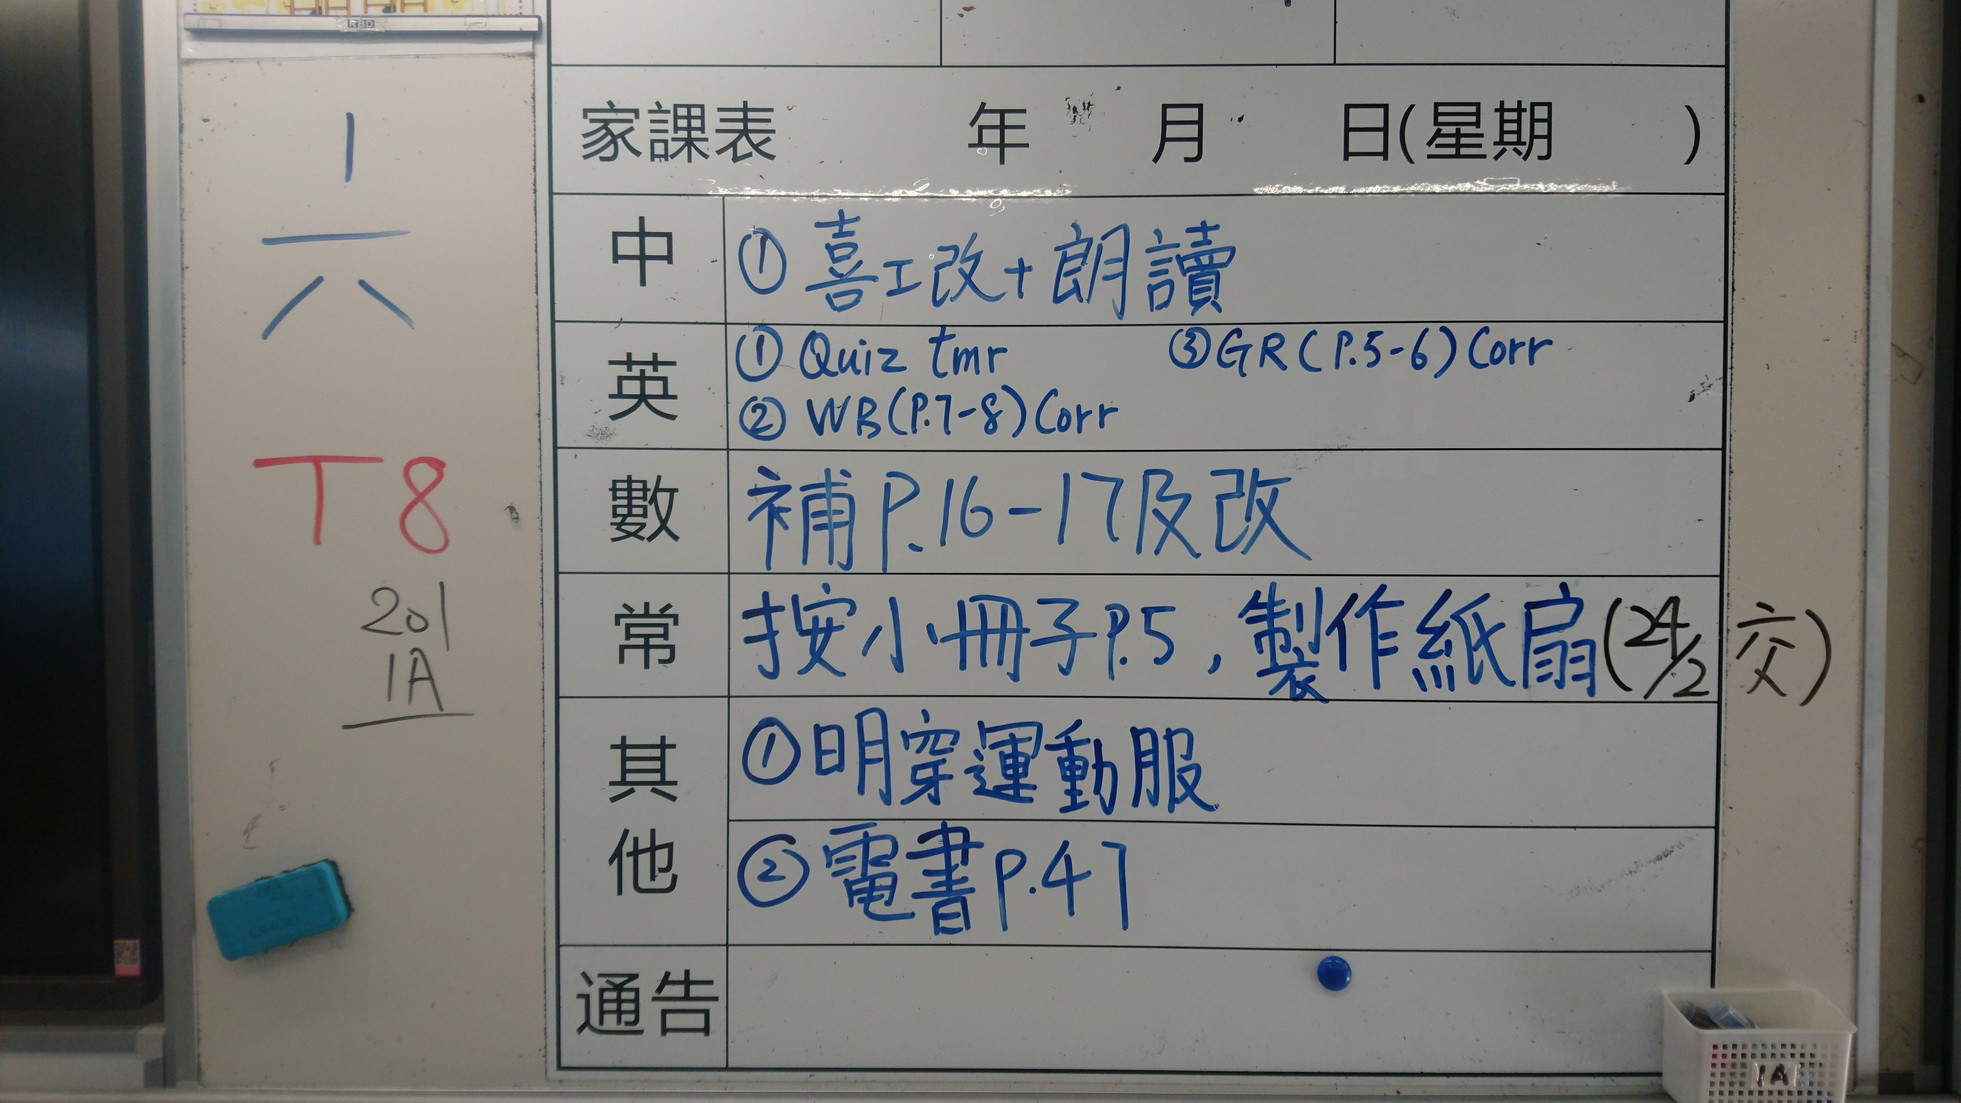 RBD
六
T8
201
1A
家課表 年 月 日(星期 )
中 ①喜工改+朗讀
英 ①Quiz tmr ③GR(P.5-6)Corr
②WB(P.7-8)Corr
數 補P.16-17及改
常 按小冊子P.5,製作紙扇(24/2交)
其他 ①明穿運動服
②電書P.47
通告
1A